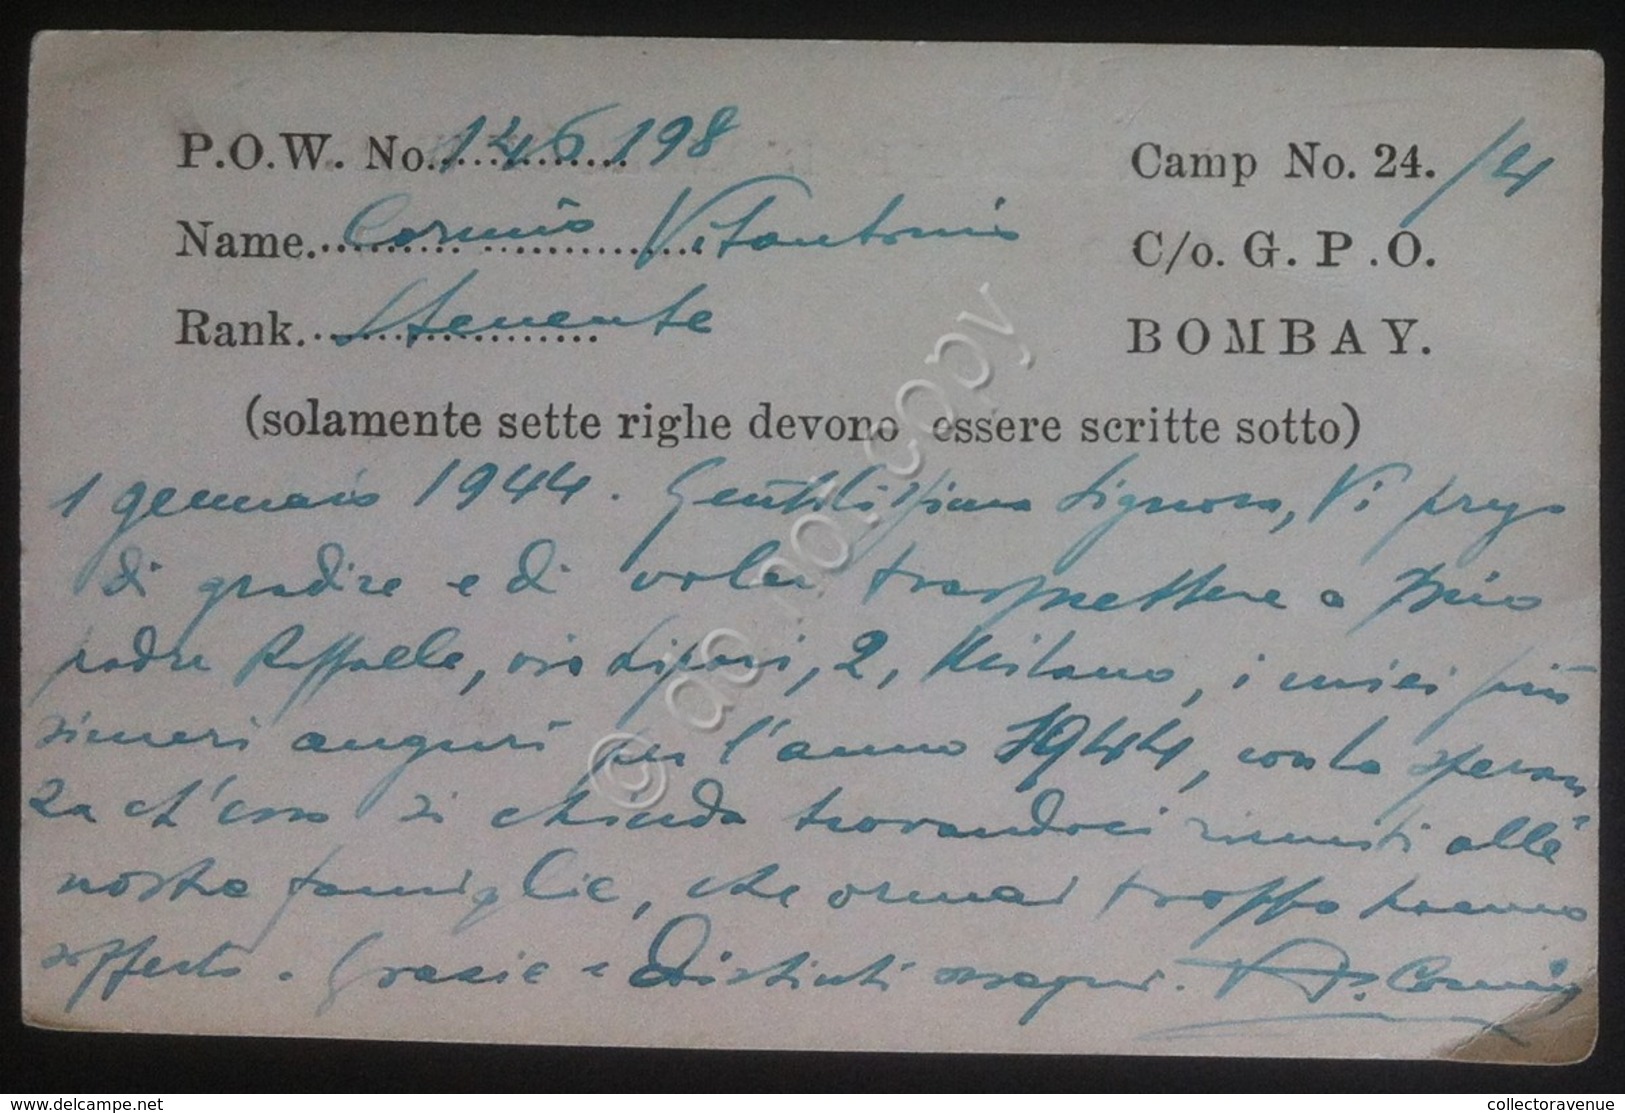 P.O.W. No. 146198
Camp No. 24. /4
Name. Cormio Vitantonio
C/o. G. P. O.
Rank. S.tenente
BOMBAY.
(solamente sette righe devono essere scritte sotto)
1 gennaio 1944. Gentilissima Signora, Vi prego
di gradire e di voler trasmettere a mio
padre Raffaele, via Lipari, 2, Milano, i miei più
sinceri auguri per l'anno 1944, con la speran
za ch'esso si chiuda trovandoci riuniti alle
nostre famiglie, che ormai troppo hanno
sofferto. Grazie e distinti ossequi. V. Cormio
© do not copy
www.delcampe.net
collectoravenue